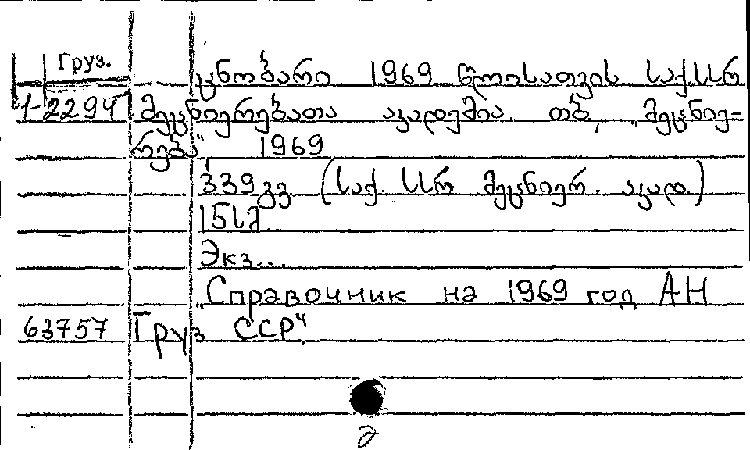 Груз.
ცნობარი 1969 წლისათვის საქ.სსრ
1-2294 მეცნიერებათა აკადემია. თბ, „მეცნიე-
რება" 1969
339 გვ (საქ. სსრ მეცნიერ. აკად.)
Экз...
„Справочник на 1969 год АН
63757 Груз ССР"